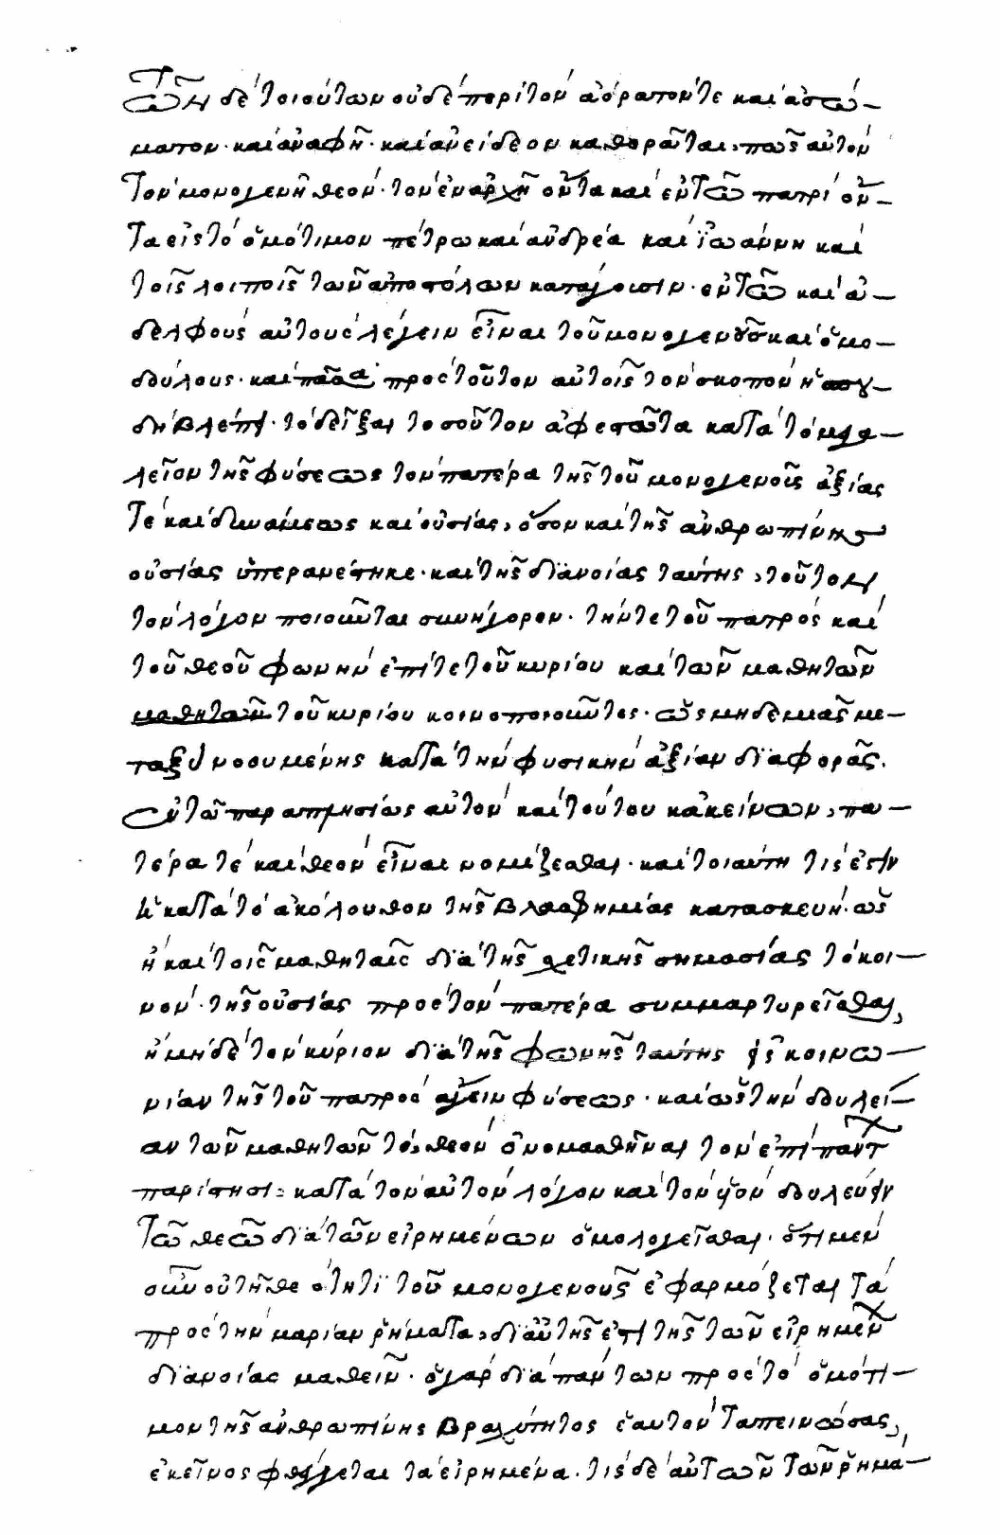 Τῶν δὲ τοιούτων οὐδὲ περὶ τὸν ἀόρατόν τε καὶ ἀσώ-
ματον· καὶ ἀναφῆ· καὶ ἀνείδεον καθορᾶται, πῶς αὐτὸν
τὸν μονογενῆ θεὸν· τὸν ἐν ἀρχῆ ὄντα καὶ ἐν τῶ πατρὶ ὄν-
τα εἰς τὸ ὁμότιμον πέτρω καὶ ἀνδρέα καὶ ἰωάννη καὶ
τοῖς λοιποῖς τῶν ἀποστόλων κατάγουσιν· ἐν τῶ καὶ ἀ-
δελφοὺς αὐτοὺς λέγειν εἶναι τοῦ μονογενοῦς καὶ ὁμο-
δούλους· καὶ πᾶσα πρὸς τοῦτον αὐτοῖς τὸν σκοπὸν ἡ σπου-
δὴ βλέπει· τὸ δεῖξαι τοσοῦτον ἀφεστῶτα κατὰ τὸ μεγα-
λεῖον τῆς φύσεως τὸν πατέρα τῆς τοῦ μονογενοῦς ἀξίας
τε καὶ δυνάμεως καὶ οὐσίας, ὅσον καὶ τῆς ἀνθρωπίνης
οὐσίας ὑπερανέστηκε· καὶ τῆς διανοίας ταύτης, τοῦτον
τὸν λόγον ποιοῦνται συνήγορον· τήν τε τοῦ πατρὸς καὶ
τοῦ θεοῦ φωνὴν ἐπί τε τοῦ κυρίου καὶ τῶν μαθητῶν
μαθητῶν τοῦ κυρίου κοινοποιοῦντες· ὡς μηδεμιᾶς με-
ταξὺ νοουμένης κατὰ τὴν φυσικὴν ἀξίαν διαφορᾶς.
ἐν τῶ παραπλησίως αὐτὸν καὶ τούτου κἀκείνων, πα-
τέρα τὲ καὶ θεὸν εἶναι νομίζεσθαι· καὶ τοιαύτη τίς ἐστιν
ἡ κατὰ τὸ ἀκόλουθον τῆς βλασφημίας κατασκευὴ· ὡς
ἢ καὶ τοῖς μαθηταῖς διὰ τῆς σχετικῆς σημασίας τὸ κοι-
νὸν· τῆς οὐσίας πρὸς τὸν πατέρα συμμαρτυρεῖσθαι,
ἢ μηδὲ τὸν κύριον διὰ τῆς φωνῆς ταύτης εἰς κοινω-
νίαν τῆς τοῦ πατρὸς ἄγειν φύσεως· καὶ ὡς τὴν δουλεί-
αν τῶν μαθητῶν τὸ, θεὸν ὀνομασθῆναι τὸν ἐπὶ πάντ
παρίστησι: κατὰ τὸν αὐτὸν λόγον καὶ τὸν υἱὸν δουλεύειν
τῶ θεῶ διὰ τῶν εἰρημένων ὁμολογεῖσθαι· ὅτι μὲν
οὖν οὐ τῆ θεότητι τοῦ μονογενοῦς ἐφαρμόζεται τὰ
πρὸς τὴν μαρίαν ῥήματα, δι αὐτῆς ἐστι τῆς τῶν εἰρημέν
διανοίας μαθεῖν· ὁ γὰρ διὰ πάντων πρὸς τὸ ὁμότι-
μον τῆς ἀνθρωπίνης βραχύτητος ἑαυτὸν ταπεινώσας,
ἐκεῖνος φθέγγεται τὰ εἰρημένα· τίς δὲ αὐτῶν τῶν ῥημά-